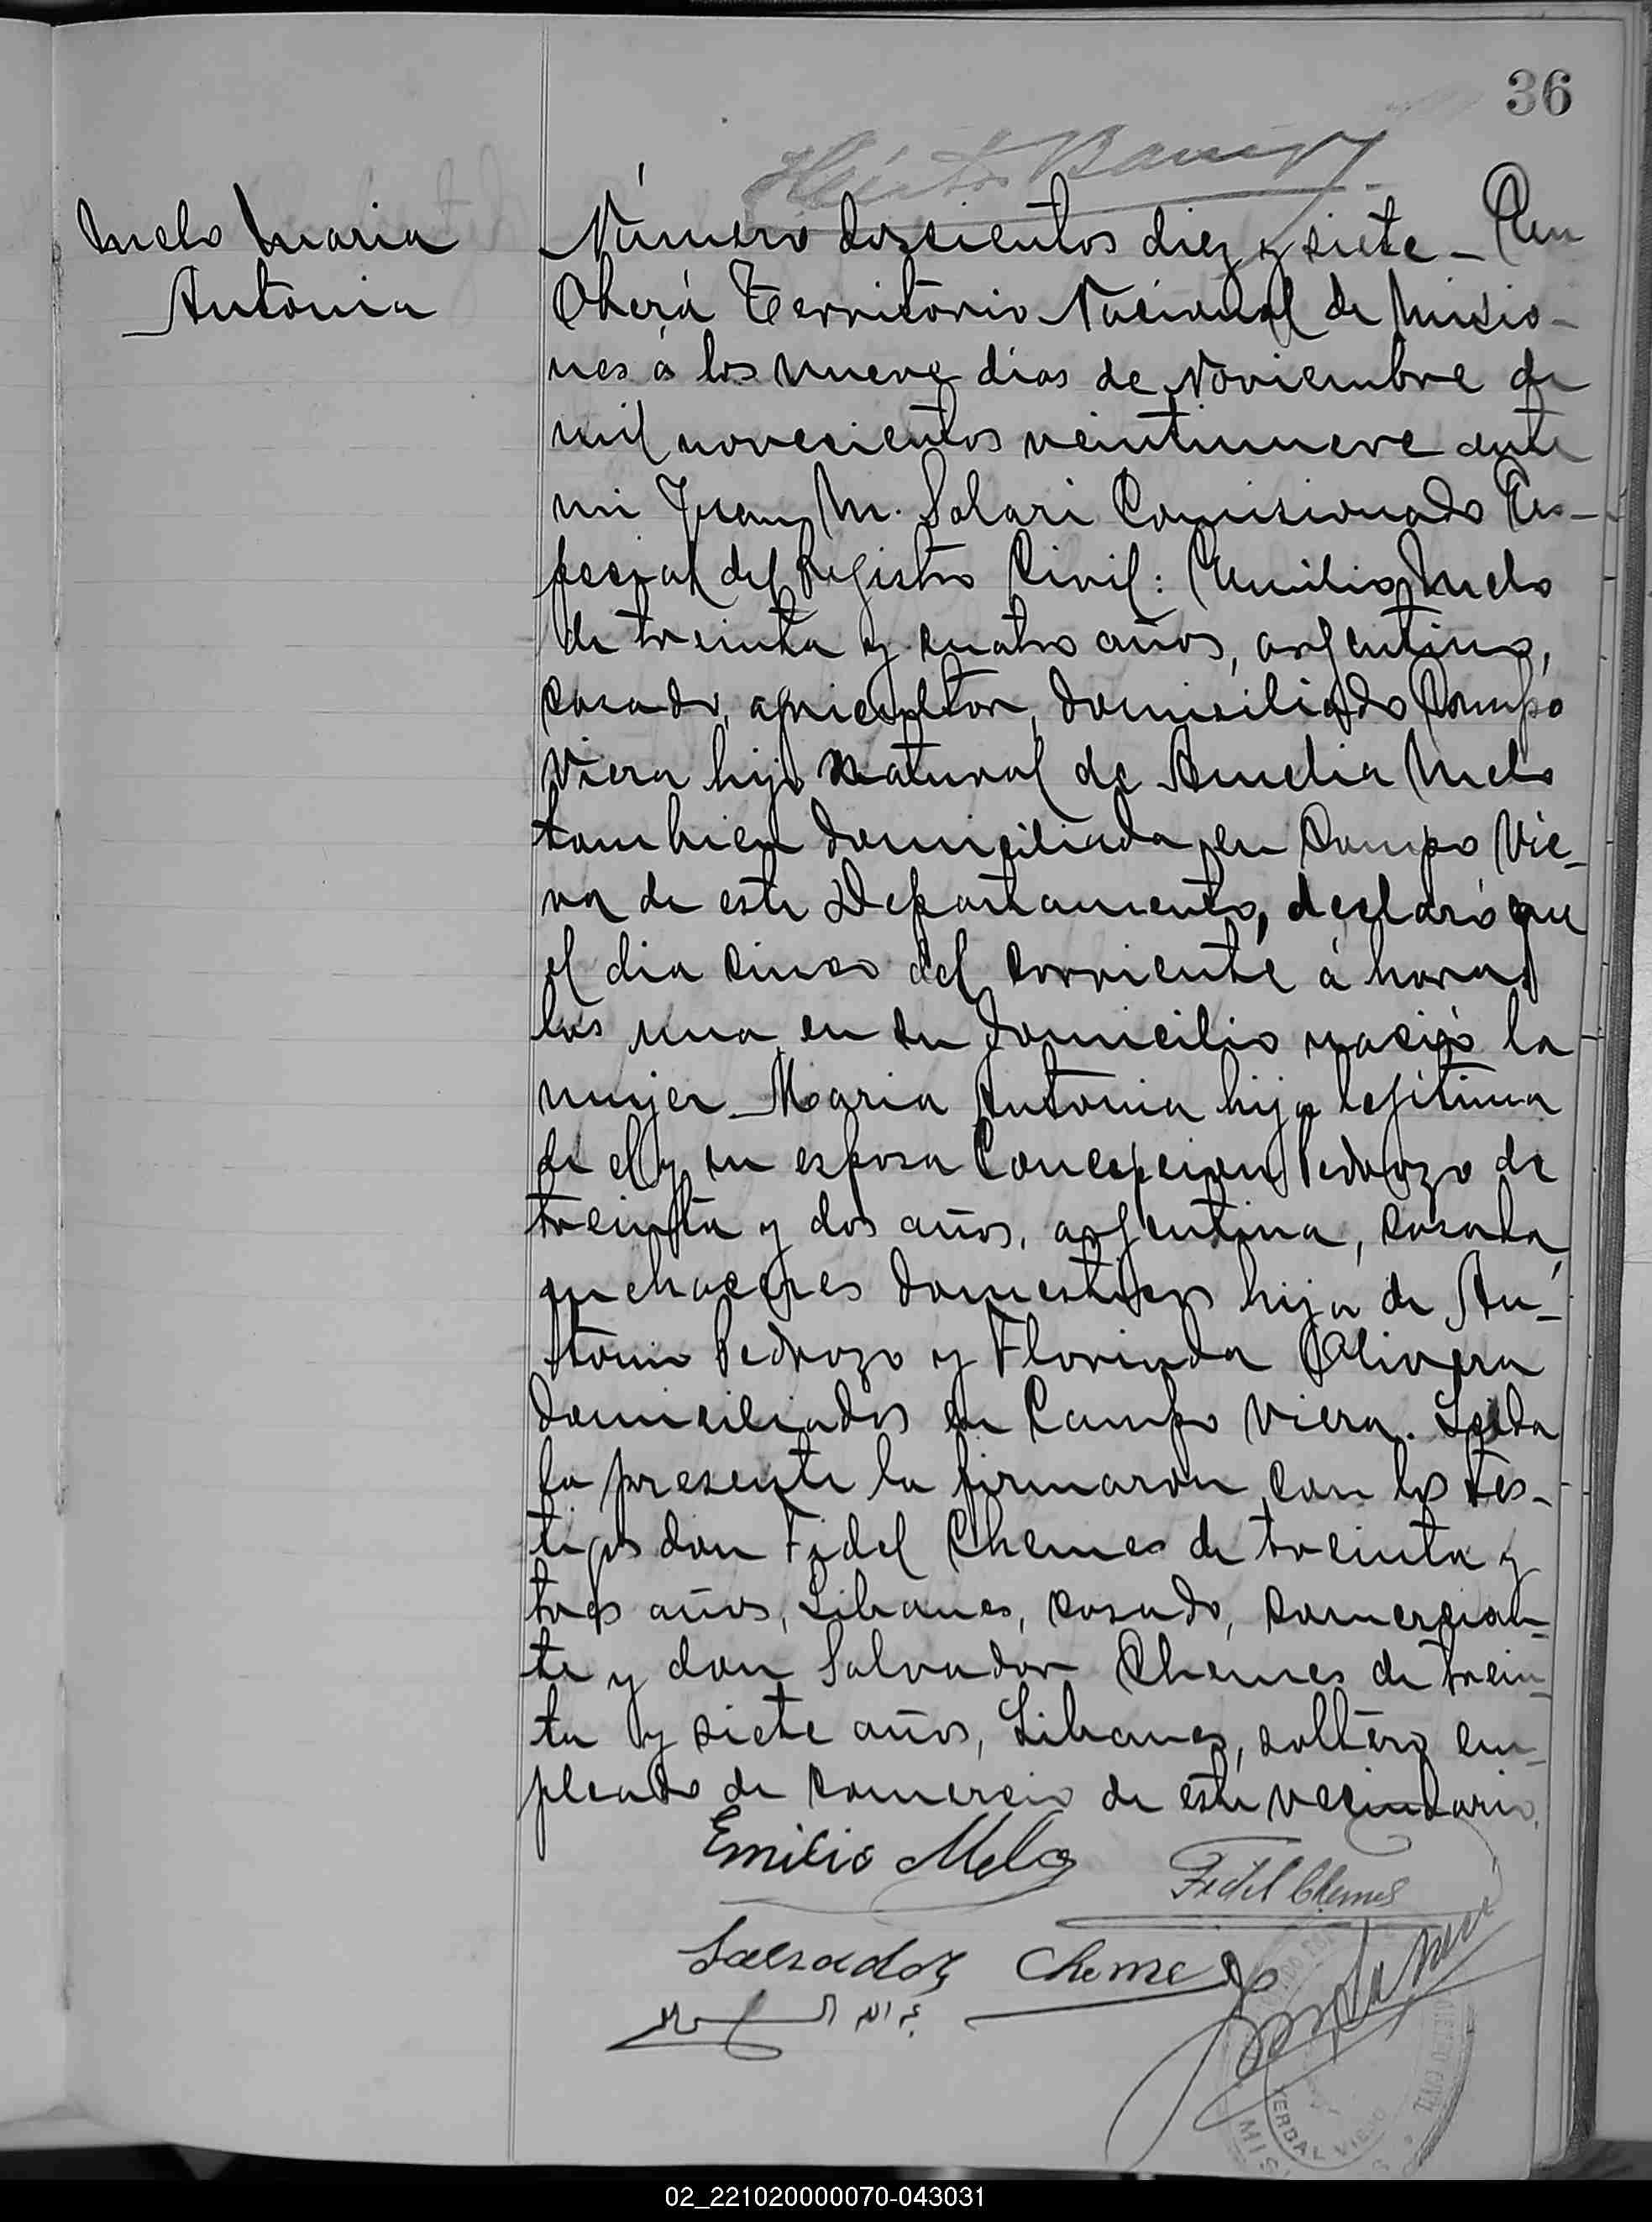 36
Melo Maria
Antonia
Número doscientos diez y siete - En
Oberá Territorio Nacional de Misio-
nes á los nueve dias de Noviembre de
mil novecientos veintinueve ante
mi Juan M. Solari Comisionado Es-
pecial del Registro Civil: Emilio Melo
de treinta y cuatro años, argentino,
casado, agricultor, domiciliado Campo
Viera hijo natural de Amelia Melo
tambien domiciliada en Campo Vie-
ra de este Departamento, declaró que
el dia cinco del corriente á horas
las una en su domicilio nació la
mujer Maria Antonia hija legitima
de el y su esposa Concepcion Pedrozo de
treinta y dos años, argentina, casada,
quehaceres domesticos hija de An-
tonio Pedrozo y Florinda Olivera
domiciliados en Campo Viera. Leida
la presente la firmaron con los tes-
tigos don Fidel Chemes de treinta y
tres años, Libanes, casado, comercian-
te y don Salvador Chemes de trein-
ta y siete años, Libanes, soltero em-
pleado de comercio de este vecindario.
Emilio Melo
Fidel Chemes
Salvador Chemes
YERBAL VIEJO
02_221020000070-043031